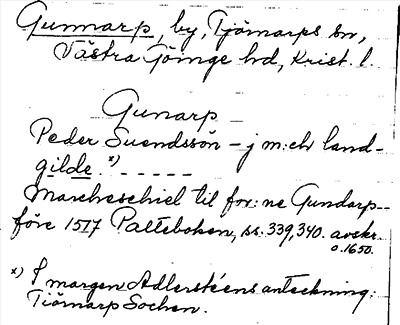 Gunnarp, by, Tjörnarps sn,
Västra Göinge hd, Krist. l.
Gunarp
Peder Suendssön – j m:ch land-
gilde.*) - - - - -
Marcheschiel til for:ne Gundarp--
före 1517 Palteboken, ss. 339, 340. avskr.
o. 1650.
*) I margen Adlersténs anteckning:
Tiörnarp Sochen.